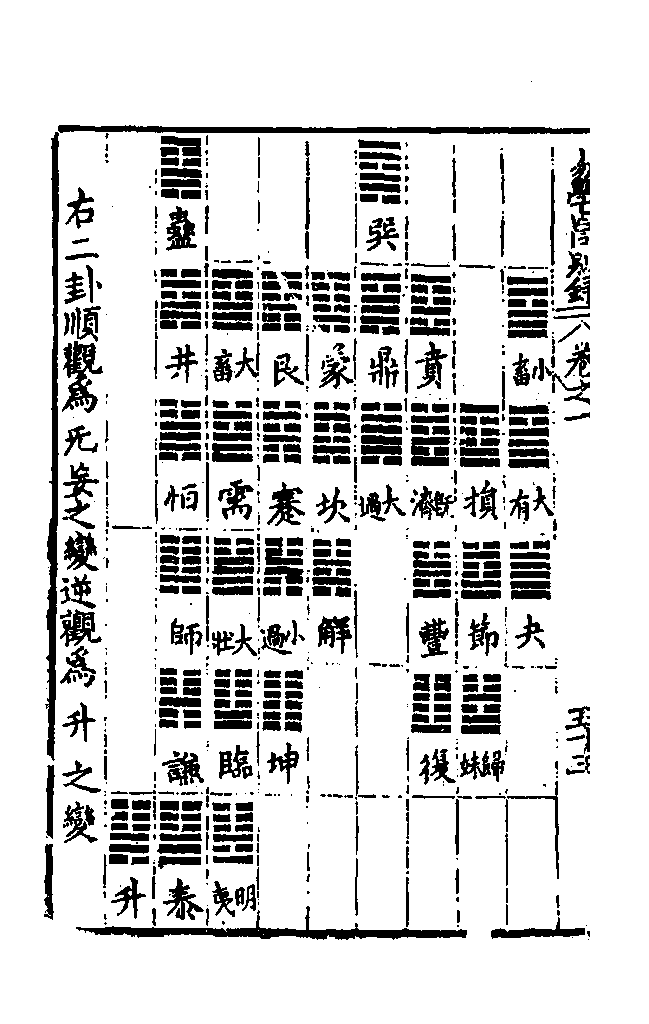 卷之一
小畜 大有 夬
損 節 歸妹
賁 既濟 豐 復
巽 鼎 大過
蒙 坎 解
艮 蹇 小過 坤
大畜 需 大壯 臨 明夷
蠱 井 恒 師 謙 泰
升
右二卦順觀爲无妄之變逆觀爲升之變